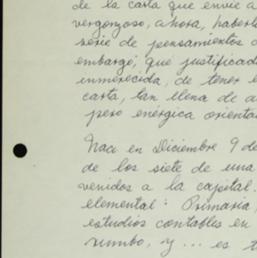 de la carta que envié a
vergonzoso, ahora, haberle
serie de pensamientos
embargo; que justificad
inmerecida, de tener e
carta, tan llena de a
pero enérgica orienta
Nací en Diciembre 9 de
de los siete de una
venidos a la capital.
elemental: Primaria,
estudios contables en
rumbo, y... es t